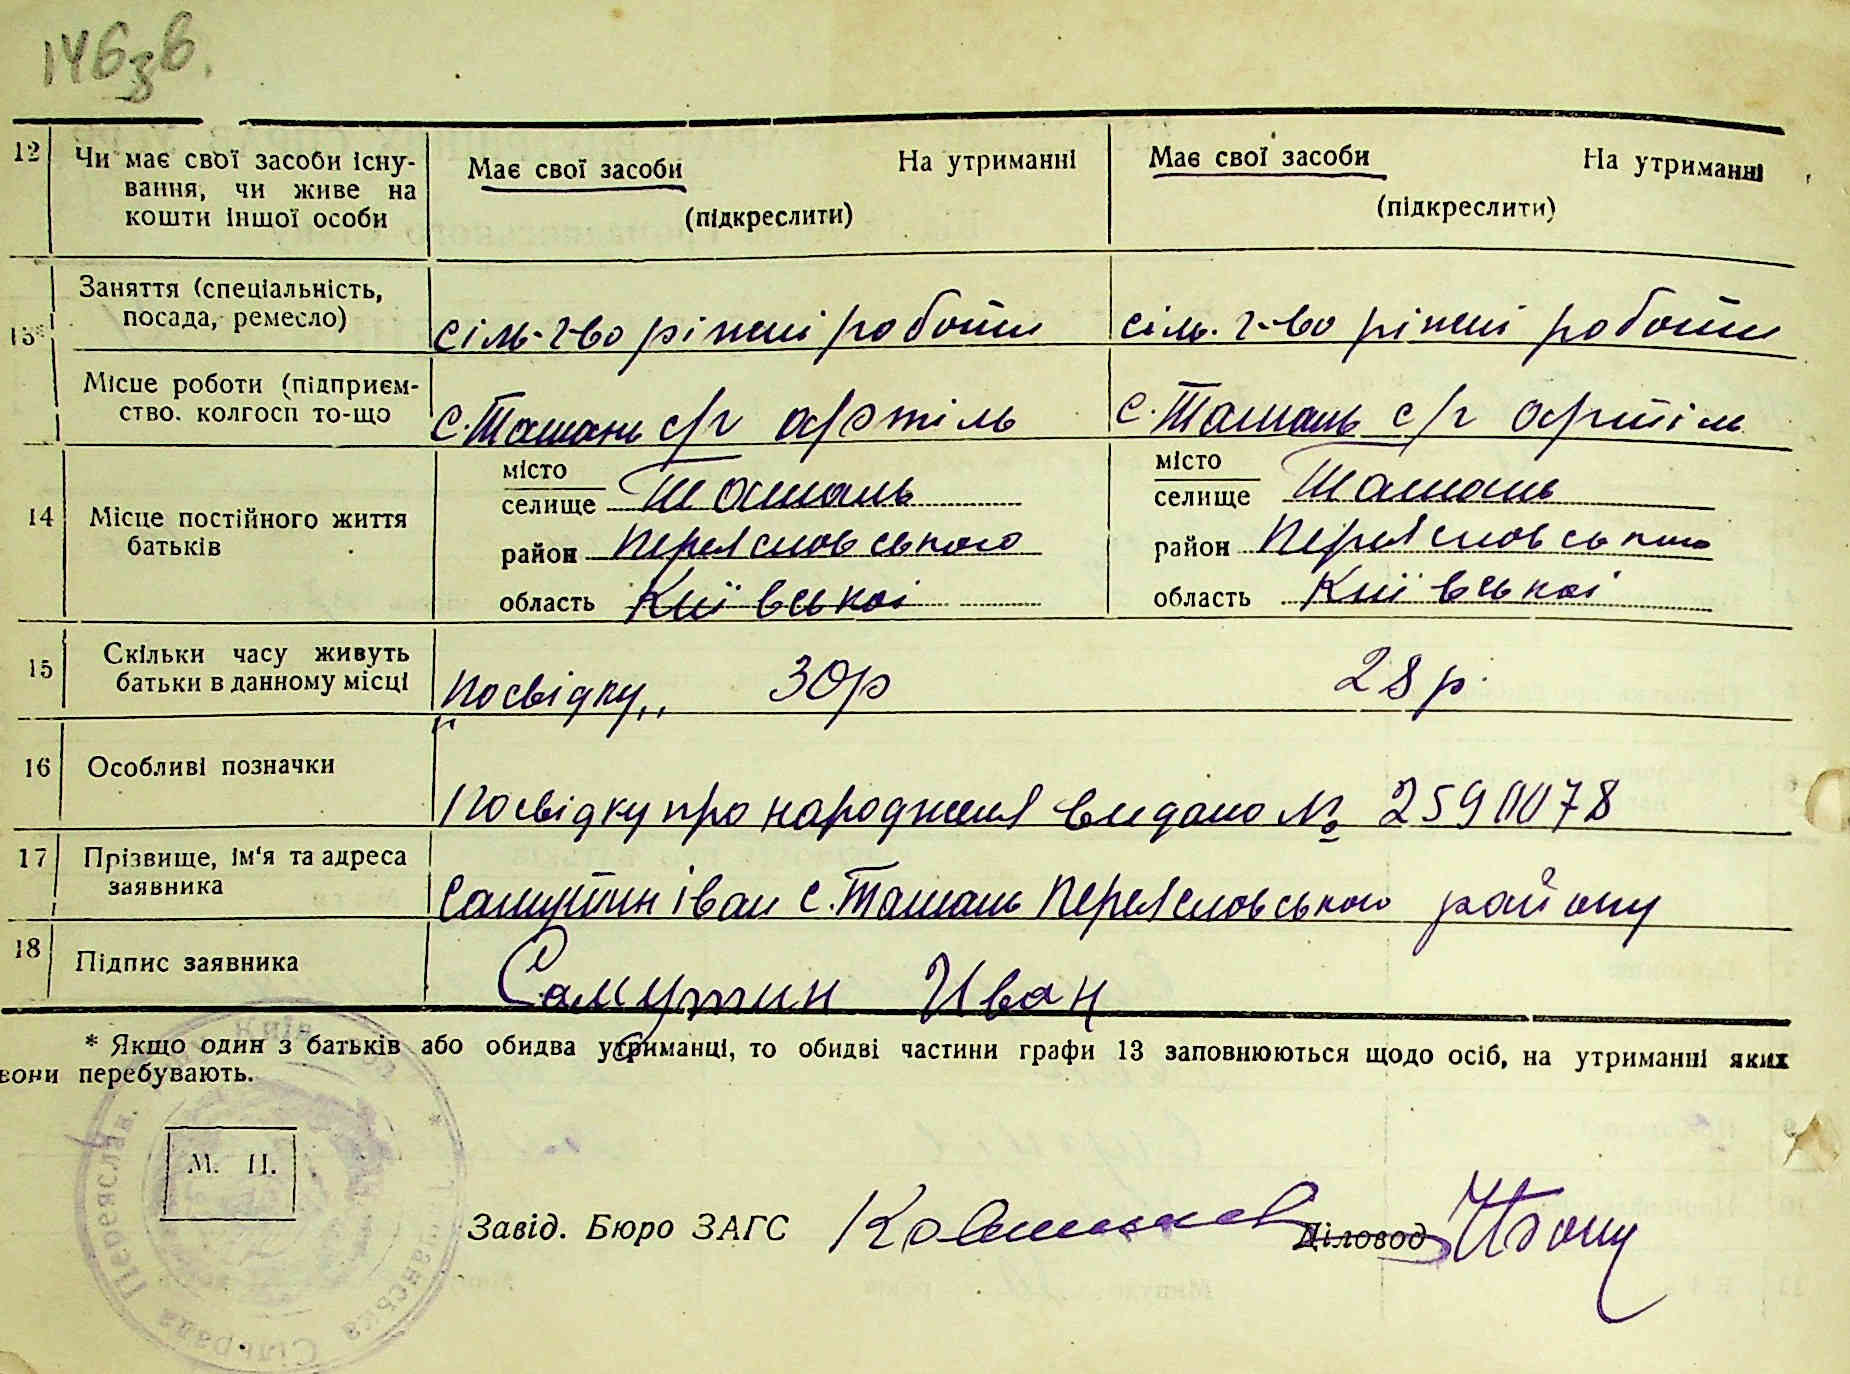 146зв.
12 Чи має свої засоби існу- Має свої засоби На утриманні Має свої засоби На утриманні
вання, чи живе на
кошти іншої особи (підкреслити) (підкреслити)
13* Заняття (спеціальність,
посада, ремесло) сіль-г-во ріжні роботи сіль. г-во ріжні роботи
Місце роботи (підприєм-
ство. колгосп то-що с. Ташань с/г артіль с. Ташань с/г артіль
місто місто
селище Ташань селище Ташань
14 Місце постійного життя
батьків район Переяславського район Переяславського
область Київської область Київської
15 Скільки часу живуть
батьки в данному місці посвідку,, 30р 28р.
16 Особливі позначки
Посвідку про народження видано № 2590078
17 Прізвище, ім'я та адреса
заявника Самутин Іван с. Ташань Переяславського району
18 Підпис заявника Самутин Иван
* Якщо один з батьків або обидва утриманці, то обидві частини графи 13 заповнюються щодо осіб, на утриманні яких
вони перебувають.
М. П.
Завід. Бюро ЗАГС Діловод
Переяслав. Київ обл * Ташанська Сільрада